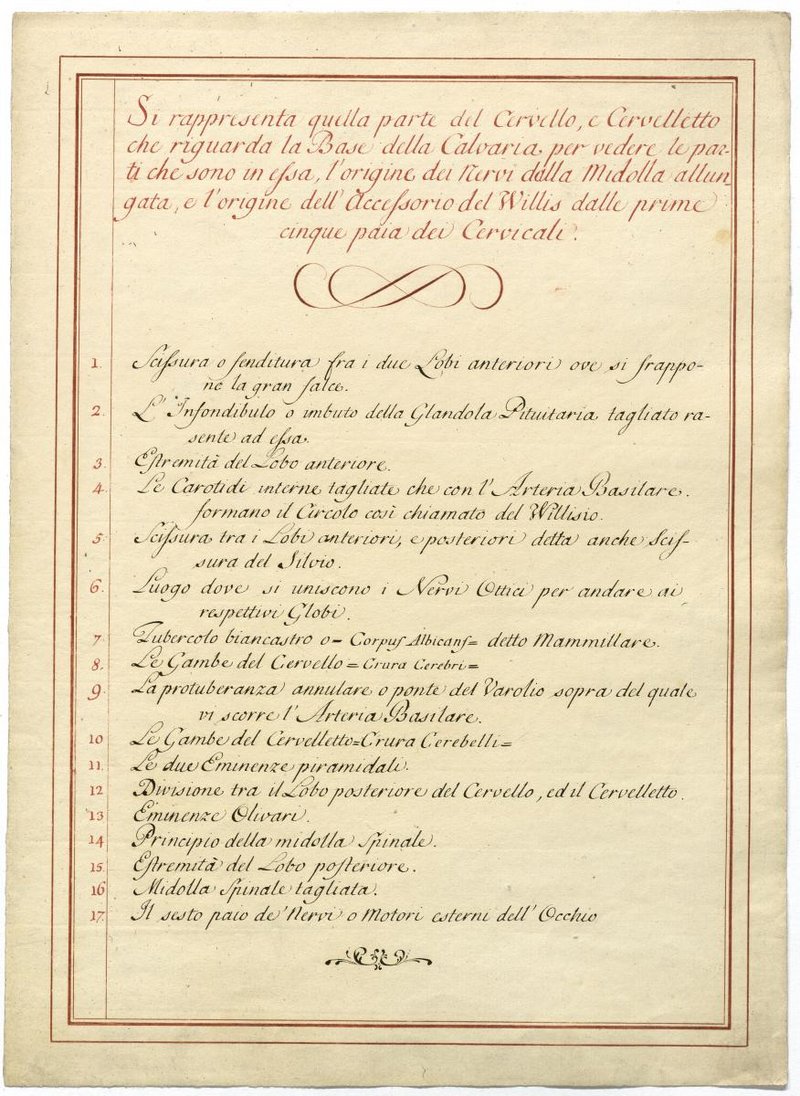 Si rappresenta quella parte del Cervello, e Cervelletto
che riguarda la Base della Calvaria, per vedere le par-
ti che sono in essa, l'origine dei Nervi dalla Midolla allun-
gata, e l'origine dell'Accessorio del Willis dalle prime
cinque paia dei Cervicali.
1. Scissura o fenditura fra i due Lobi anteriori ove si frappo-
ne la gran falce.
2. L'Infondibulo o imbuto della Glandola Pituitaria tagliato ra-
sente ad essa.
3. Estremità del Lobo anteriore.
4. Le Carotidi interne tagliate che con l'Arteria Basilare.
formano il Circolo così chiamato del Willisio.
5. Scissura tra i Lobi anteriori, e posteriori detta anche Scis-
sura del Silvio.
6. Luogo dove si uniscono i Nervi Ottici per andare ai
respettivi Globi.
7. Tubercolo biancastro o = Corpus Albicans = detto Mammillare.
8. Le Gambe del Cervello = Crura Cerebri =
9. La protuberanza annulare o ponte del Varolio sopra del quale
vi scorre l'Arteria Basilare.
10 Le Gambe del Cervelletto = Crura Cerebelli =
11. Le due Eminenze piramidali.
12 Divisione tra il Lobo posteriore del Cervello, ed il Cervelletto.
13 Eminenze Olivari.
14 Principio della midolla Spinale.
15. Estremità del Lobo posteriore.
16 Midolla Spinale tagliata.
17. Il sesto paio de' Nervi o Motori esterni dell'Occhio